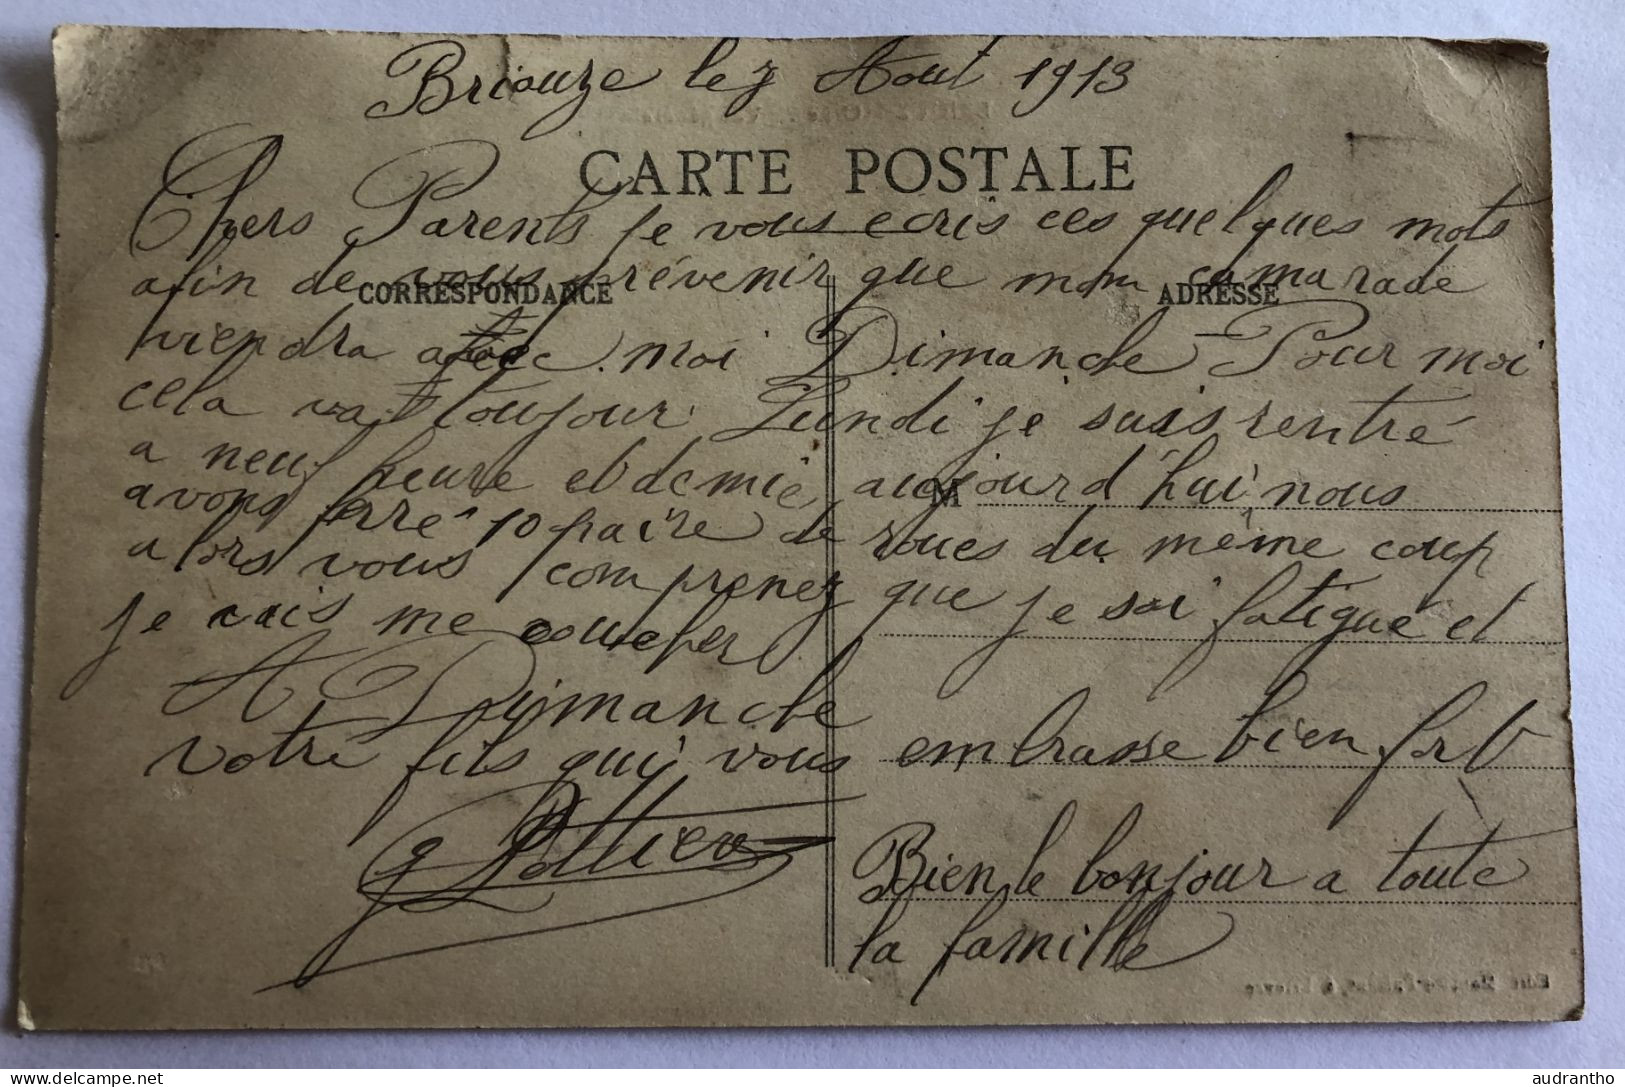 Briouze le 7 Aout 1913
CARTE POSTALE
Chers Parents je vous ecris ces quelques mots
afin de vous prévenir que mon camarade
CORRESPONDANCE
ADRESSE
viendra avec moi Dimanche Pour moi
cela va toujour Lundi je suis rentré
a neuf heure et demie, aujourd'hui nous
M
avons ferré 10 paire de roues du même coup
alors vous comprenez que je sui fatigué et
je vais me coucher
A Dimanche
votre fils qui vous embrasse bien fort
G Pottier
Bien le bonjour a toute
la famille
audrantho